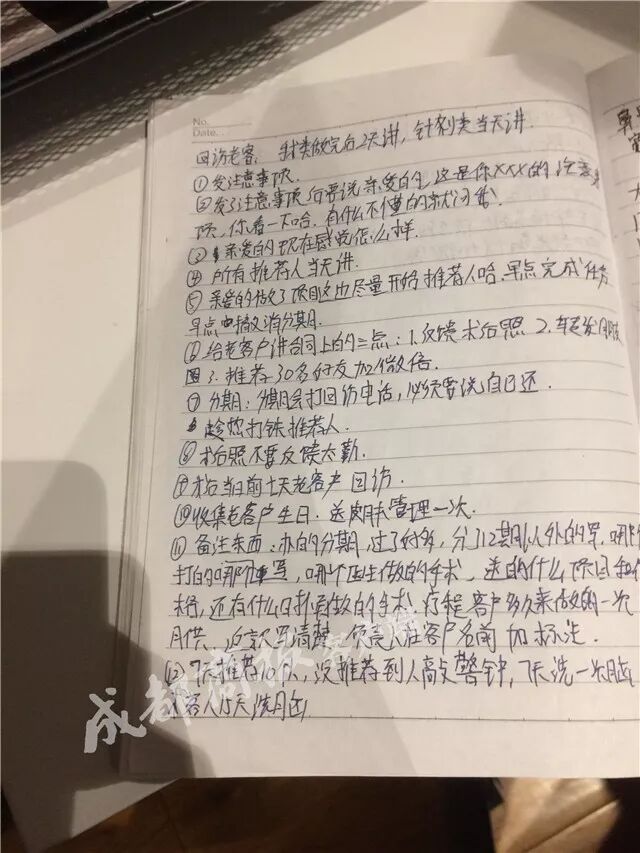 No.
Date.
回访老客: 针类做完后2天讲, 针剂类当天讲.
①发注意事项.
②发了注意事项后要说亲爱的, 这是你XXX的注意事
项, 你看一下哈. 有什么不懂的就问我
③亲爱的现在感觉怎么样.
④所有推荐人当天讲.
⑤亲爱的做了项目这边尽量开始推荐人哈, 早点完成任务
早点申撤消分期.
⑥给老客户讲合同上的三点: 1.反馈术后照 2.转发朋友
圈 3.推荐30名好友加微信.
⑦分期: 分期会打回访电话, 必须要说自己还.
趁热打铁推荐人.
⑧术后照不要反馈太勤.
⑨术后当日前七天老客户回访.
⑩收集老客户生日. 送皮肤管理一次.
⑪备注东西: 办的分期, 过了好多, 分了12期以外的写,
打的哪 哪个医生做的手术, 送的什么项目
还有什么日期做的手术, 疗程客户多久来做的一次
月供, 客户名前加标注.
⑫7天推荐10人, 没推荐到人高文警钟, 7天洗一次脑
15天洗
成都商报